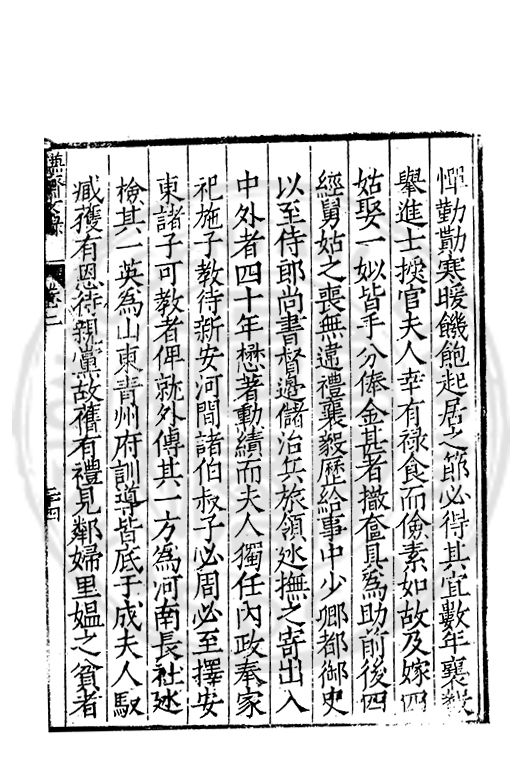 憚勤勩寒暖饑飽起居之節必得其宜數年襄毅
舉進士授官夫人幸有祿食而儉素如故及嫁四
姑娶一姒皆手分俸金甚者撤奩具為助前後四
經舅姑之喪無違禮襄毅歷給事中少卿都御史
以至侍郎尚書督邊儲治兵旅領廵撫之寄出入
中外者四十年懋著勳績而夫人獨任內政奉家
祀施子教待新安河間諸伯叔子必周必至擇安
東諸子可教者俾就外傅其一方為河南長社廵
檢其一英為山東青州府訓導皆底于成夫人馭
臧獲有恩待親黨故舊有禮見鄰婦里媼之貧者
卷二
二十四